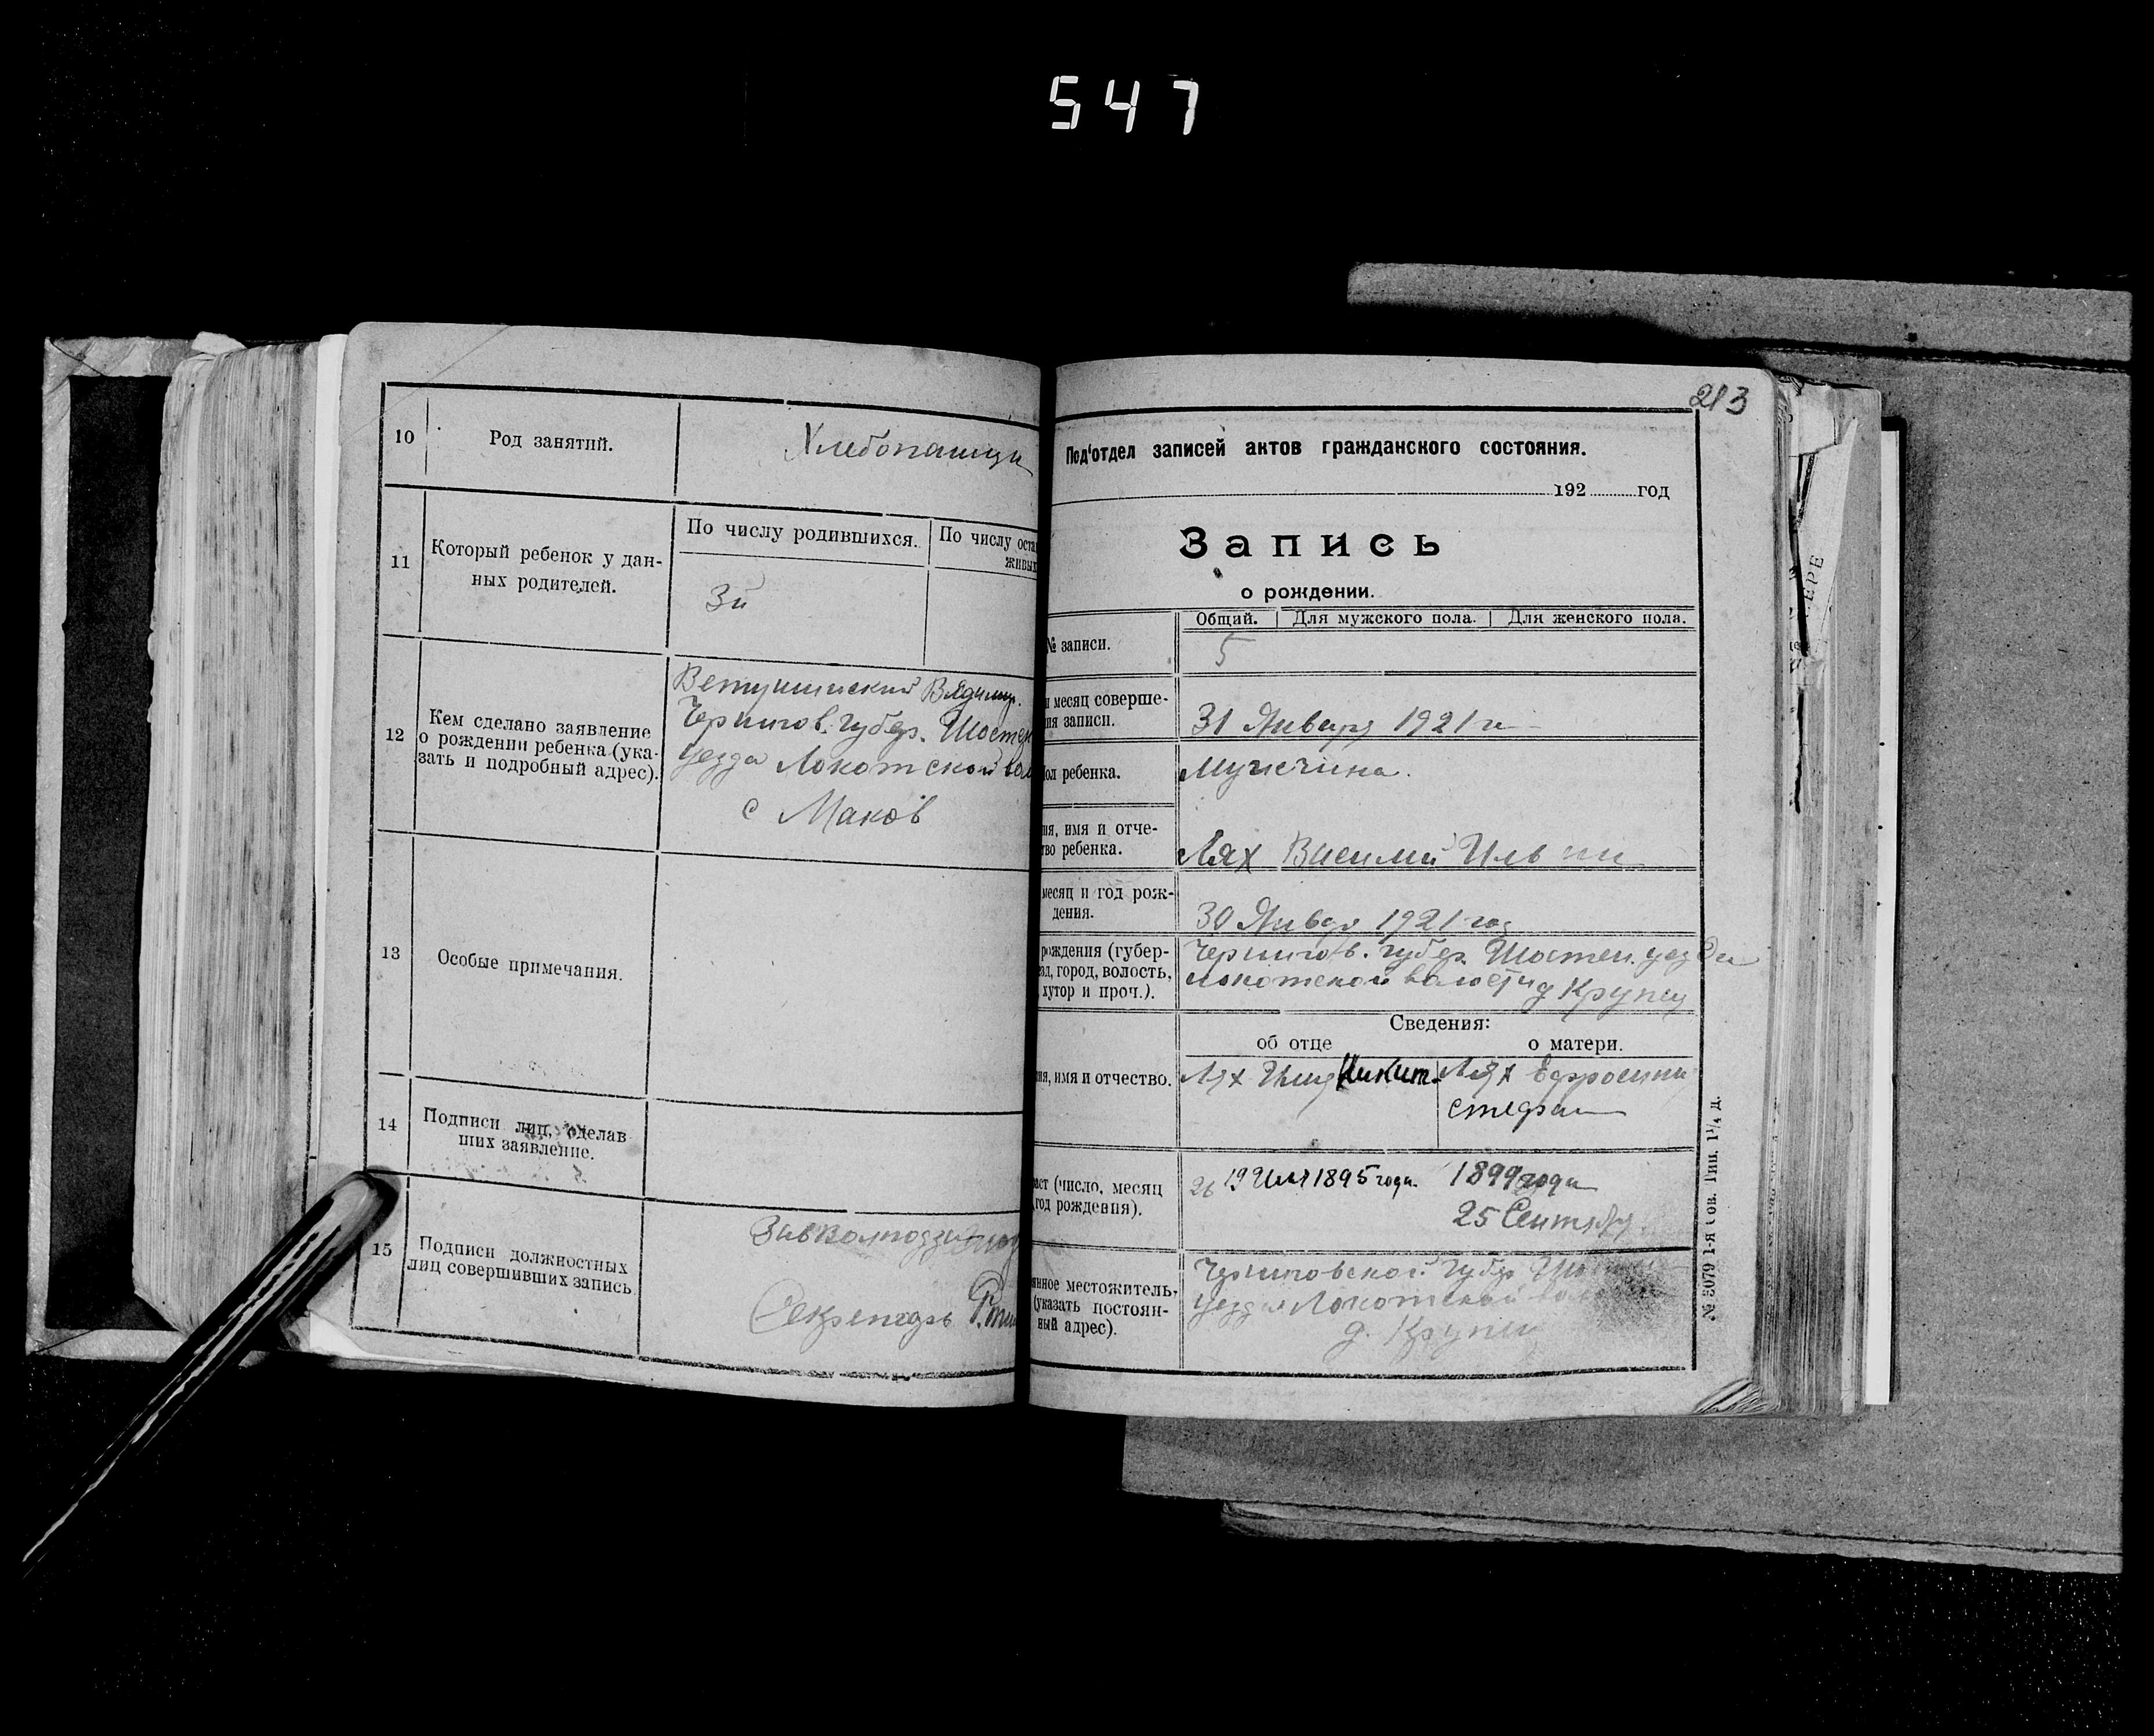 547
10
Род занятий.
Хлебопашци
11
Который ребенок у дан-
ных родителей.
По числу родившихся.
По числу оста
живых
3й
12
Кем сделано заявление
о рождении ребенка (ука-
зать и подробный адрес).
Чернигов. губер. Шостен
уезда Локотской вол
с Маков
13
Особые примечания.
14
Подписи лиц, сделав
ших заявление.
15
Подписи должностных
лиц совершивших запись
Секретарь
213
Под'отдел записей актов гражданского состояния.
192 год
Запись
о рождении.
Общий.
Для мужского пола.
Для женского пола.
№ записи.
5
и месяц соверше-
ия записи.
31 Января 1921 г
ол ребенка.
Мужчина.
ия, имя и отче-
тво ребенка.
Лях Василий Ильин
месяц и год рож-
дения.
30 Январ 1921 год
рождения (губер-
зд, город, волость,
хутор и проч.).
Чернигов. губер. Шостен. уезда
Локотской волости д Крупец
Сведения:
об отце
о матери.
ия, имя и отчество.
Лях Илия Никит.
Лях Ефросиния
Стефан
аст (число, месяц
год рождения).
26 19 Июл 1895 года.
1899 года
25 Сентябр
янное местожитель,
(указать постоян-
ный адрес).
Черниговской Губер
уезда Локотской
д. Крупец
№ 3079 1-я Сов. Тип. 1¹/₄ д.